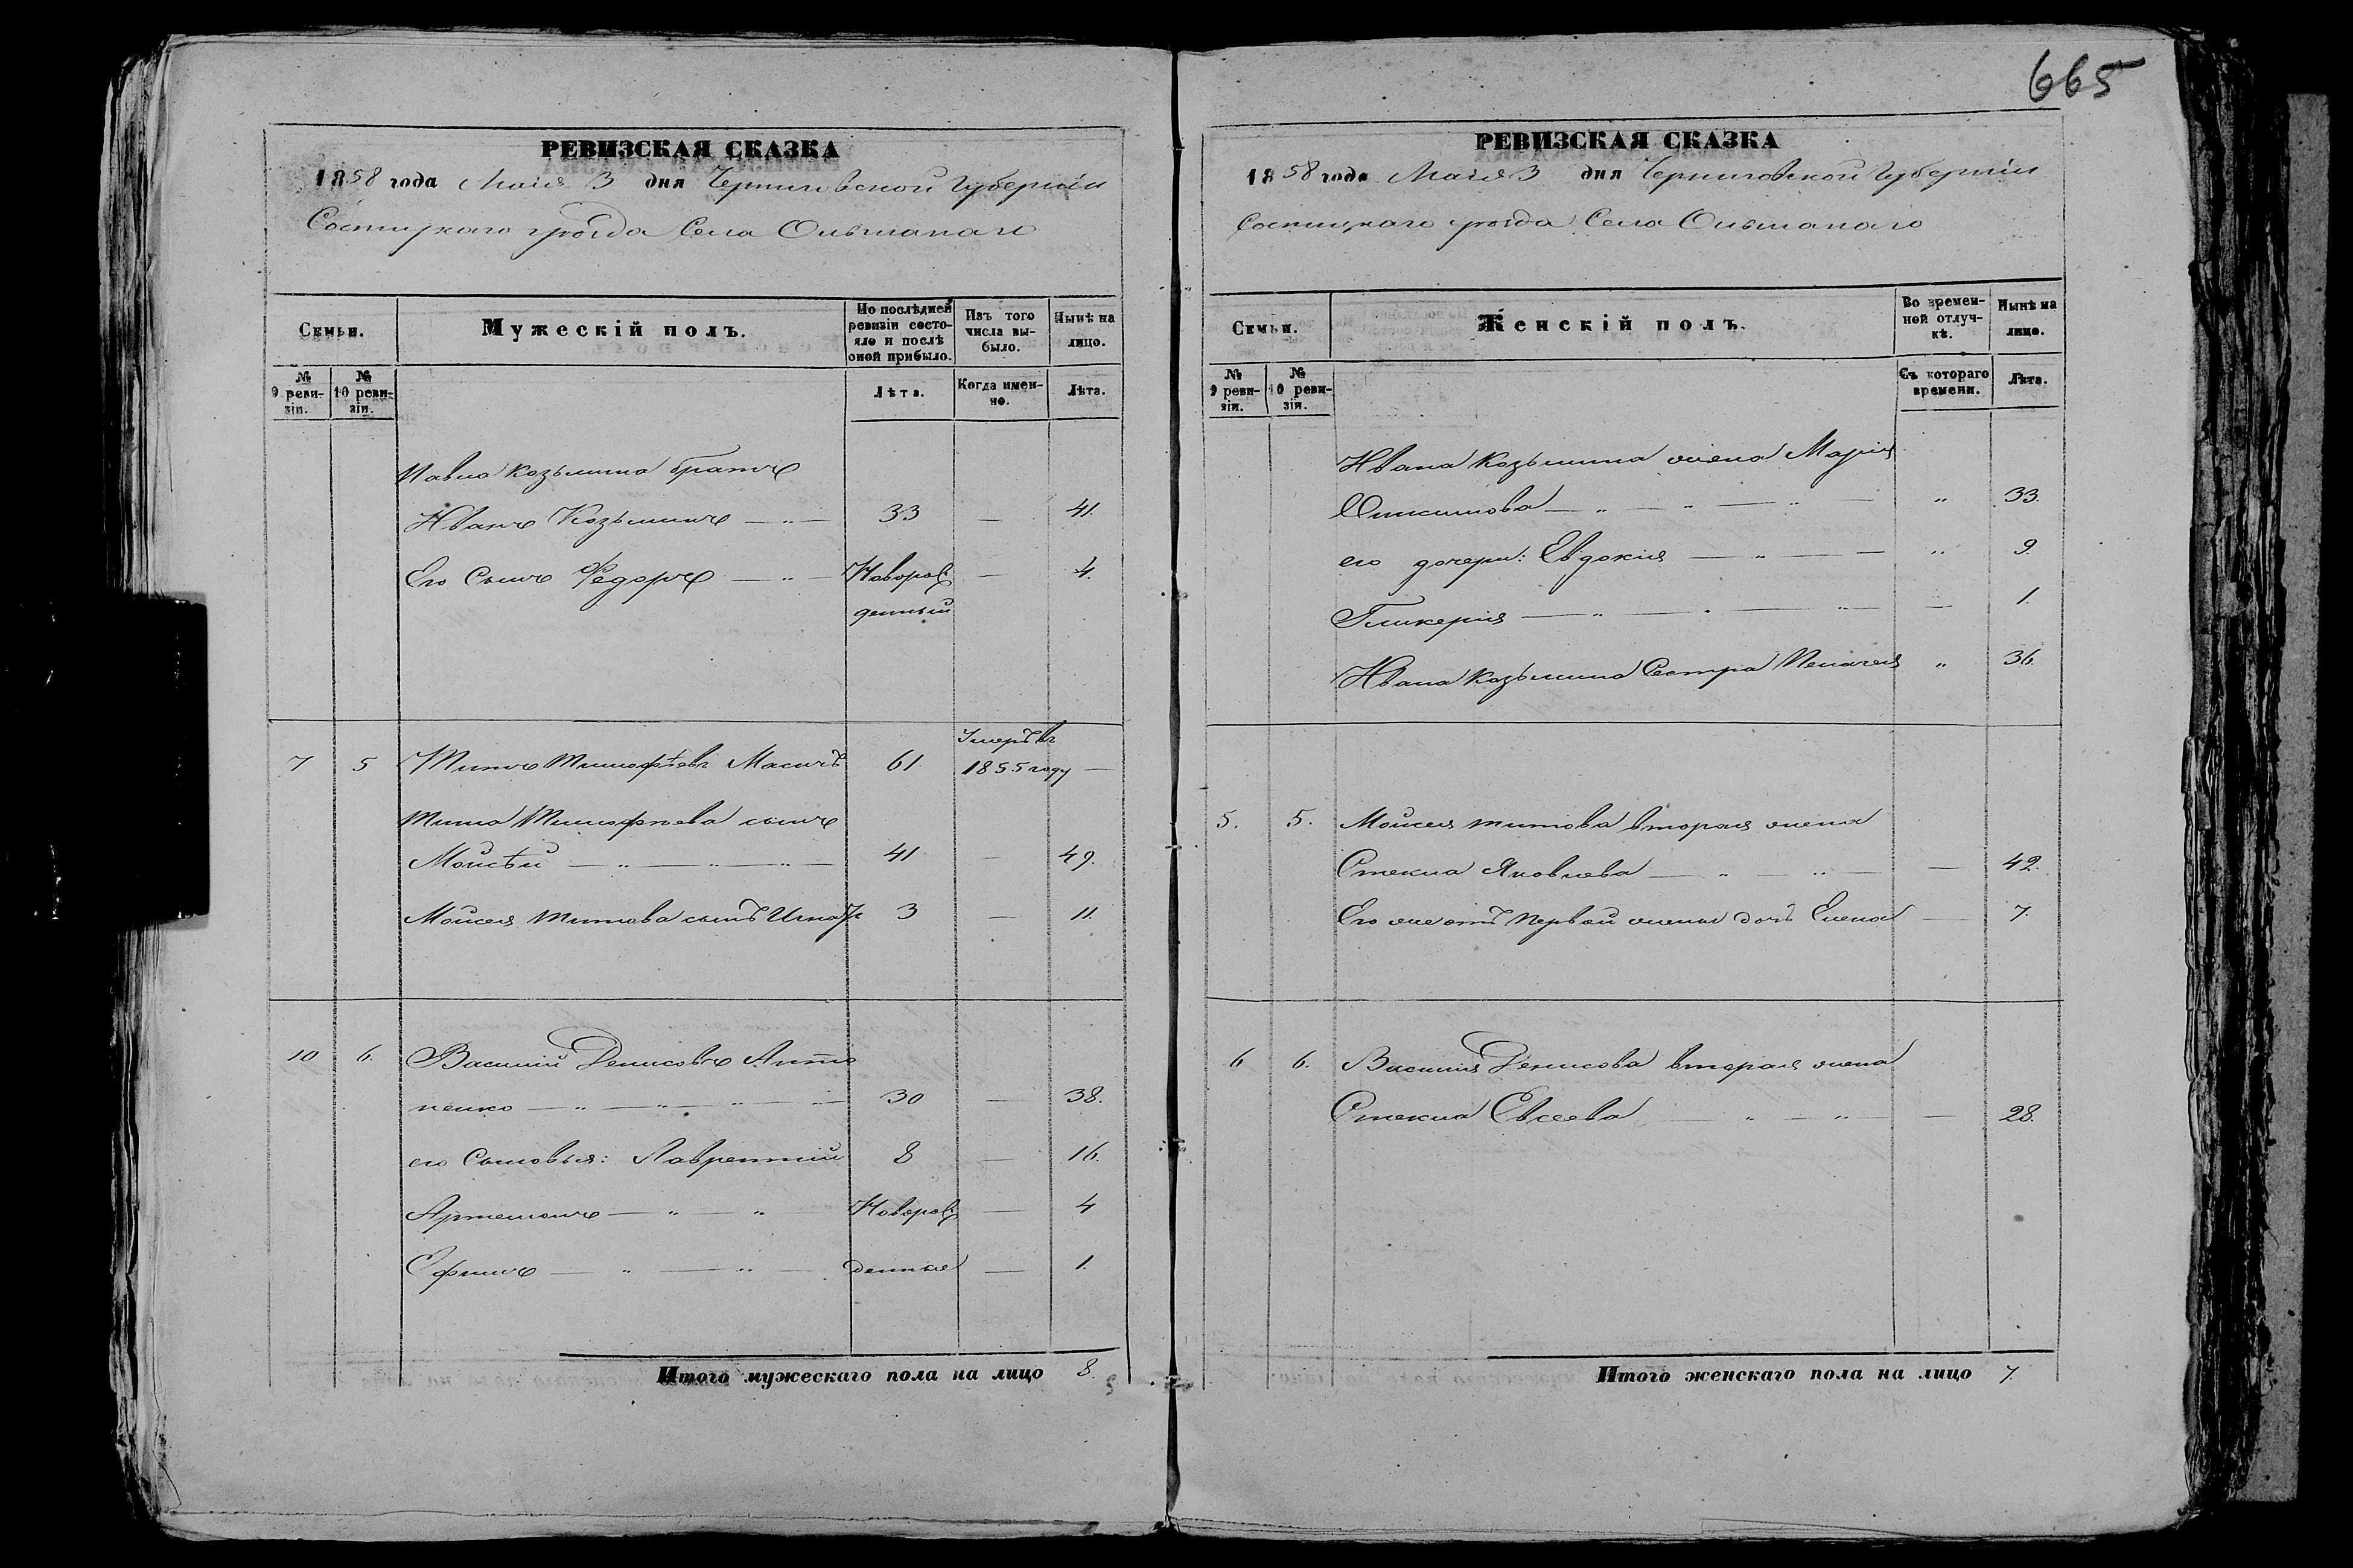 665
РЕВИЗСКАЯ СКАЗКА
1858 года Маія 3 дня Черниговской Губерніи
Сосницкаго уѣзда Села Ольшанаго
Семьи.
Мужескій полъ.
По послѣдней ревизіи состояло и послѣ оной прибыло.
Изъ того числа выбыло.
Нынѣ на лицо.
№ 9 ревизіи.
№ 10 ревизіи.
Лѣта.
Когда именно.
Лѣта.
Павла Козьмина братъ
Иванъ Козьминъ — „ — 33 — 41.
Его Сынъ Федоръ — „ — Новорож — 4.
денный
Умеръ въ
7 5 Титъ Тимофѣевъ Масичъ 61. 1855 году —
Тита Тимофѣева сынъ
Мойсѣй — „ — „ — „ — 41 — 49.
Мойсея Титова сынъ Игнатъ 3 — 11.
10 6. Василий Денисовъ Анто
ненко — „ — „ — „ — 30 — 38.
его Сыновья: Лаврентий 8 — 16.
Артемонъ — „ — „ Новорож — 4
Ефимъ — „ — „ — денные — 1.
Итого мужескаго пола на лицо 8.
РЕВИЗСКАЯ СКАЗКА
1858 года Маія 3 дня Черниговской Губерніи
Сосницкаго уѣзда Села Ольшанаго
Семьи.
Женскій полъ.
Во временной отлучкѣ.
Нынѣ на лицо.
№ 9 ревизіи.
№ 10 ревизіи.
Съ котораго времени.
Лѣта.
Ивана Козьмина жена Марія
— „ — „ — „ — „ 33.
его дочери: Евдокия — „ — „ 9.
Гликерия — „ — „ — 1.
Ивана Козьмина Сестра Пелагея „ 36.
5. 5. Мойсея Титова вторая жена
Стекла Яковлева — „ — „ — — 42.
Его же отъ первой жены дочь Елена — 7.
6 6. Василия Денисова вторая жена
Стекла Евсеева — „ — „ — — 28.
Итого женскаго пола на лицо 7.